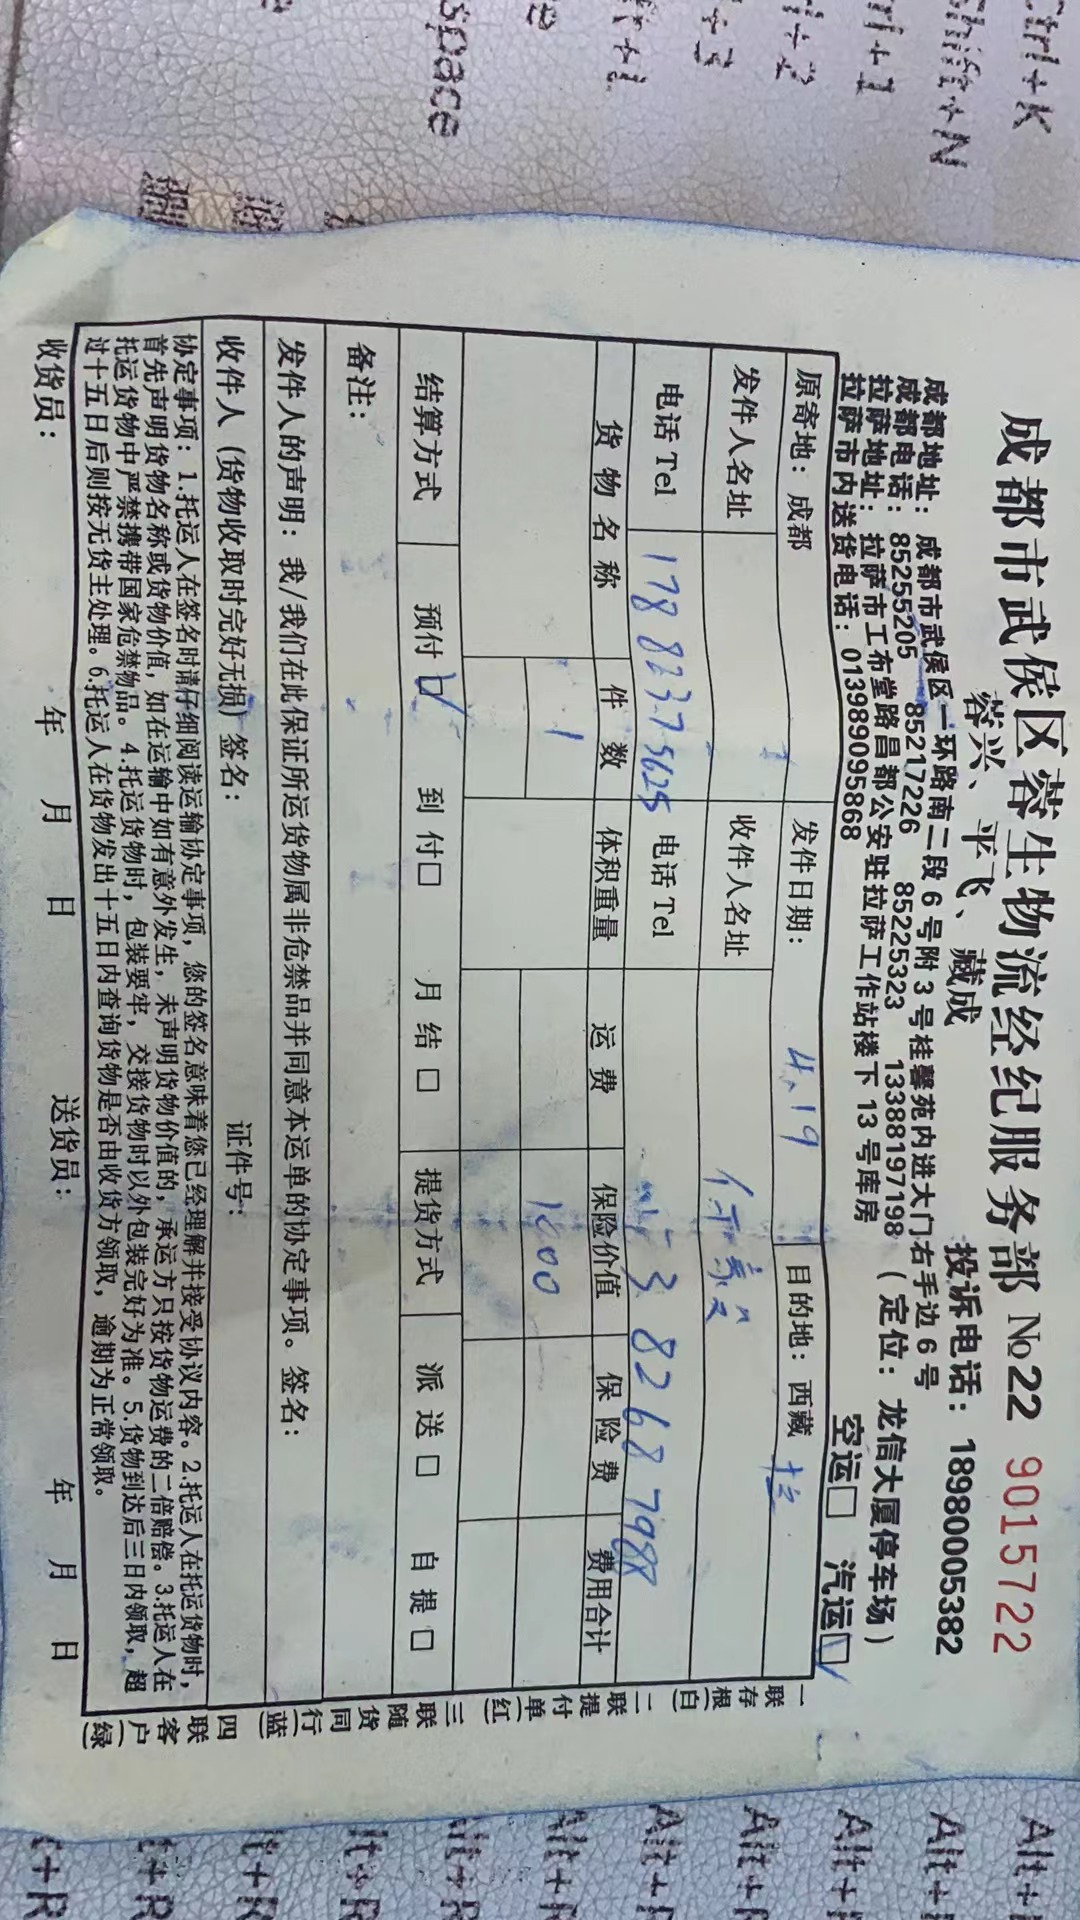 成都市武侯区蓉生物流经纪服务部 №22 9015722
蓉兴、平飞、藏成 投诉电话：18980005382
成都地址：成都市武侯区一环路南二段6号附3号桂馨苑内进大门右手边6号
成都电话：85255205 85217226 85225323 13388197198（定位：龙信大厦停车场）
拉萨地址：拉萨市工布堂路昌都公安驻拉萨工作站楼下13号库房
拉萨市内送货电话：013989095868 空运□ 汽运□
原寄地：成都 发件日期：4.19 目的地：西藏
发件人名址 收件人名址
电话 Tel 17882375625 电话 Tel 82687988
货物名称 件数 体积重量 运费 保险价值 保险费 费用合计
1 1800
结算方式 预付□ 到付□ 月结□ 提货方式 派送□ 自提□
备注：
发件人的声明：我/我们在此保证所运货物属非危禁品并同意本运单的协定事项。签名：
收件人（货物收取时完好无损）签名： 证件号：
协定事项：1.托运人在签名时请仔细阅读运输协定事项，您的签名意味着您已经理解并接受协议内容。2.托运人在托运货物时，
首先声明货物名称或货物价值，如在运输中如有意外发生，未声明货物价值的，承运方只按货物运费的二倍赔偿。3.托运人在
托运货物中严禁携带国家危禁物品。4.托运货物时，包装要牢，交接货物时以外包装完好为准。5.货物到达后三日内领取，超
过十五日后则按无货主处理。6.托运人在货物发出十五日内查询货物是否由收货方领取，逾期为正常领取。
收货员： 年 月 日 送货员： 年 月 日
一联存根(白) 二联提付单(红) 三联随货同行(蓝) 四联客户(绿)
Ctrl+K
Shift+N
space